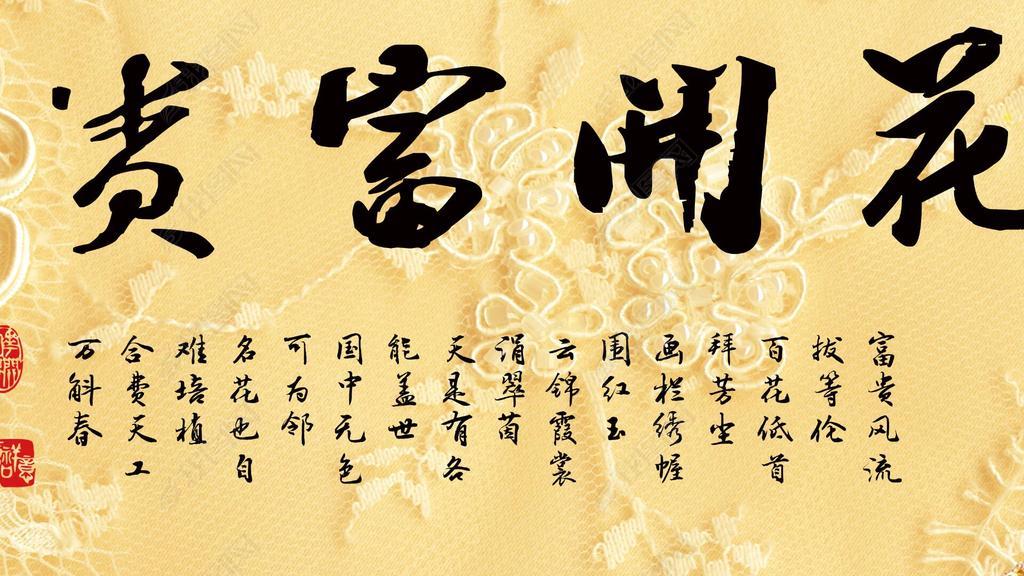 花開富贵
富贵风流
拔等伦
百花低首
拜芳尘
画栏绣幄
围红玉
云锦霞裳
涓翠茵
天是有各
能盖世
国中无色
可为邻
名花也自
难培植
合费天工
万斛春